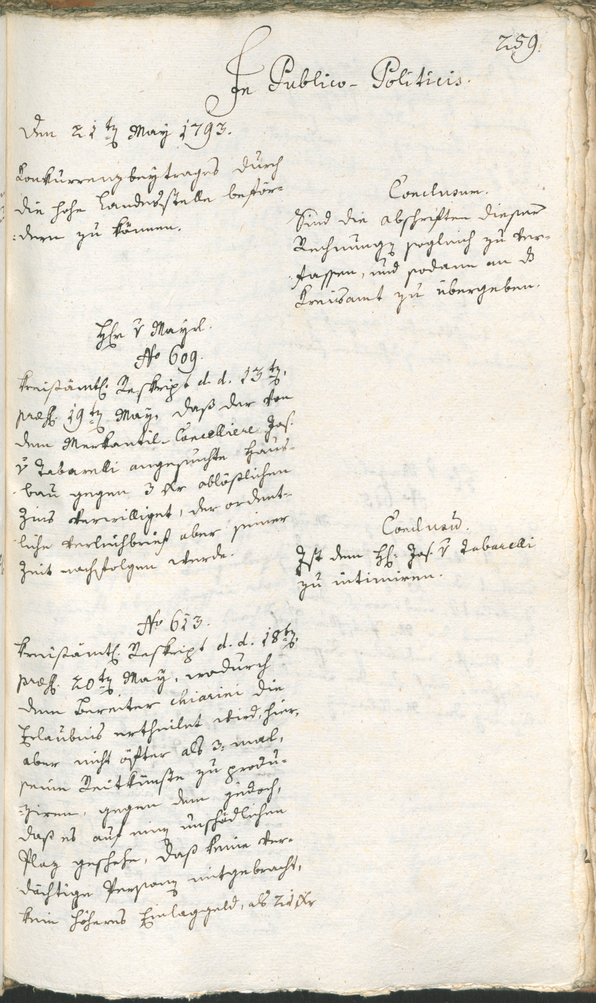 259.
In Publico-Politicis.
Den 21ten May 1793.
Konkurrenzbeytrages durch
die hohe Landesstelle beför-
:dern zu können.
Conclusum.
Sind die Abschriften dieser
Rechnung sogleich zu ver-
:fassen, und sodann an d
Kreisamt zu übergeben.
Hr v Mayrl.
No 609.
Kreisämtl. Reskript d. d. 13ten,
præs. 19ten May, daß der von
dem Merkantil-Cancelliere Jos.
v Tabarelli angesuchte Haus-
:bau gegen 3 xr ablößlichen
Zins verwilliget, der ordent-
:liche Verleichbrief aber seiner
Zeit nachfolgen werde.
Conclusum.
Ist dem Hr. Jos. v Tabarelli
zu intimiren.
No 613.
Kreisämtl. Reskript d. d. 18ten,
præs. 20ten May, wodurch
dem Bereiter Chiarini die
Erlaubnis ertheilet wird, hier,
aber nicht öfter als 3: mal,
seine Reitkünste zu produ-
:ziren, gegen dem jedoch,
daß es auf einem unschädlichen
Plaz geschehe, daß keine ver-
dächtige Personen mitgebracht,
kein höheres Einlaggeld, als 24 xr